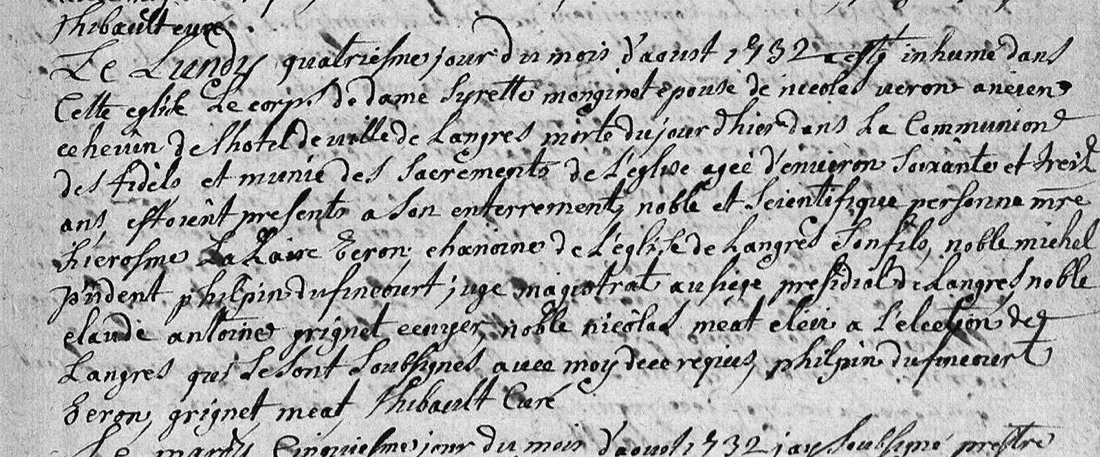 Thibault curé
Le Lundy quatriesme jour du mois d'aoust 1732 a esté inhumé dans
Cette eglise Le corps de dame Syrette monginot epouse de nicolas veron ancien
echevin de l'hotel de ville de Langres morte du jour d'hier dans La Communion
des fidels et munie des Sacrements de L'eglise ageé d'environ Soixante et treize
ans, estoient presents a Son enterrement, noble et Scientifique personne mre
hierosme La Laire Veron, chanoine de L'eglise de Langres Son fils, noble michel
philpin dufincourt juge magistrat au siege presidial de Langres noble
claude antoine grignet ecuyer, noble nicolas meat eleu a L'election de
Langres qui Se Sont Soubsignes avec moy de ce requis, philpin dufincourt
Veron, grignet meat Thibault Curé
Le mardy Cinquiesme jour du mois d'aoust 1732 jay Soubsigné prestre